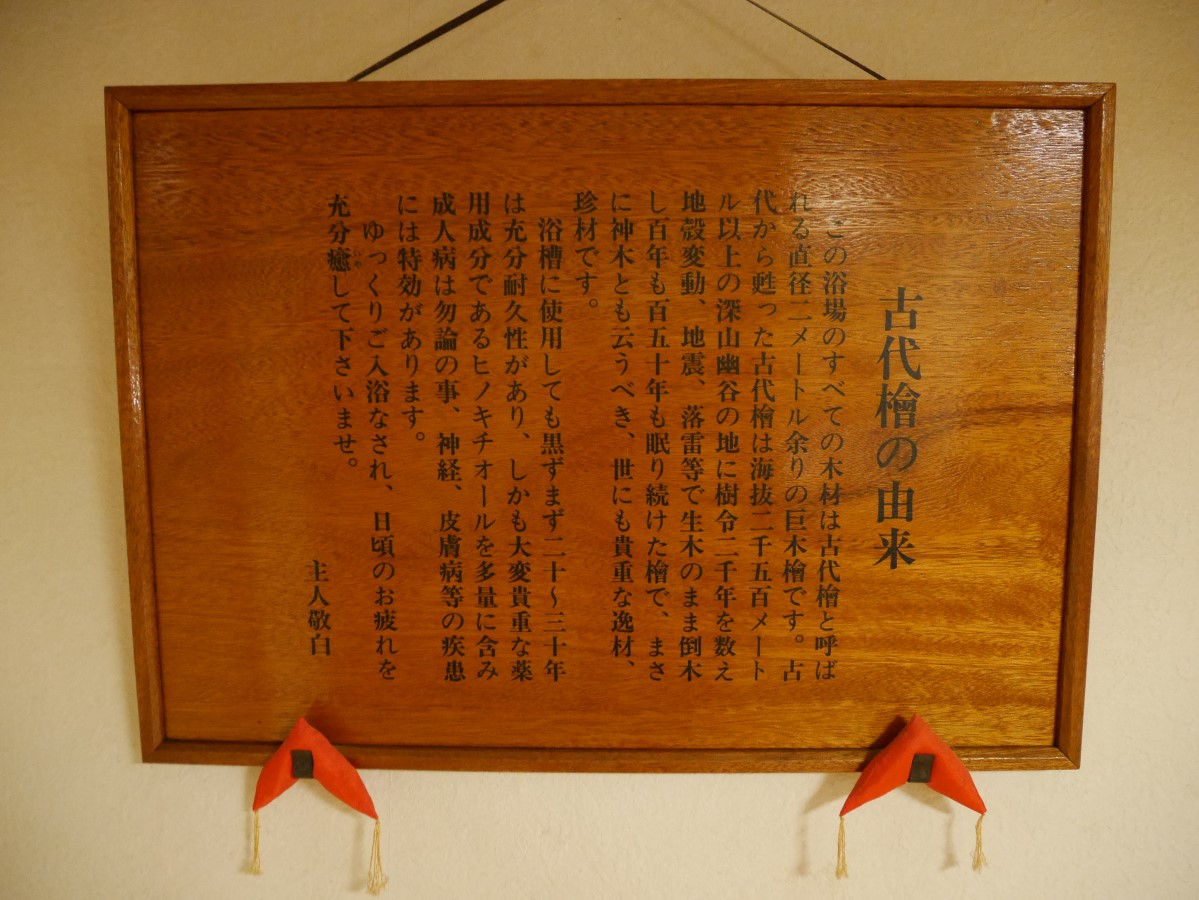 古代檜の由来
この浴場のすべての木材は古代檜と呼ば
れる直径二メートル余りの巨木檜です。古
代から甦った古代檜は海抜二千五百メート
ル以上の深山幽谷の地に樹令二千年を数え
地殻変動、地震、落雷等で生木のまま倒木
し百年も百五十年も眠り続けた檜で、まさ
に神木とも云うべき、世にも貴重な逸材、
珍材です。
浴槽に使用しても黒ずまず二十〜三十年
は充分耐久性があり、しかも大変貴重な薬
用成分であるヒノキチオールを多量に含み
成人病は勿論の事、神経、皮膚病等の疾患
には特効があります。
ゆっくりご入浴なされ、日頃のお疲れを
充分癒いやして下さいませ。
主人敬白